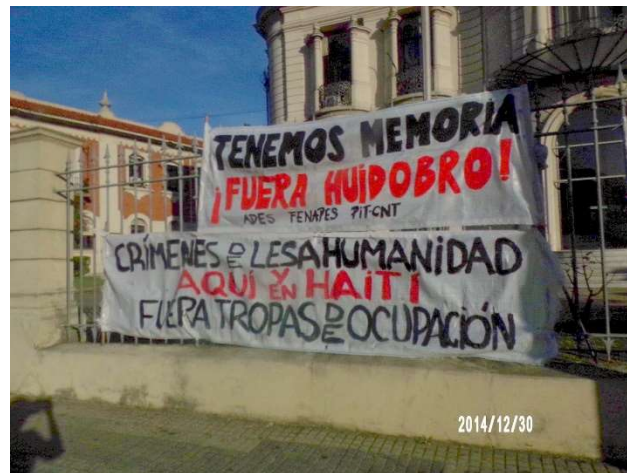 TENEMOS MEMORIA
¡FUERA HUIDOBRO!
ADES FENAPES PIT-CNT
CRÍMENES DE LESA HUMANIDAD
AQUÍ Y EN HAITÍ
FUERA TROPAS DE OCUPACIÓN
2014/12/30